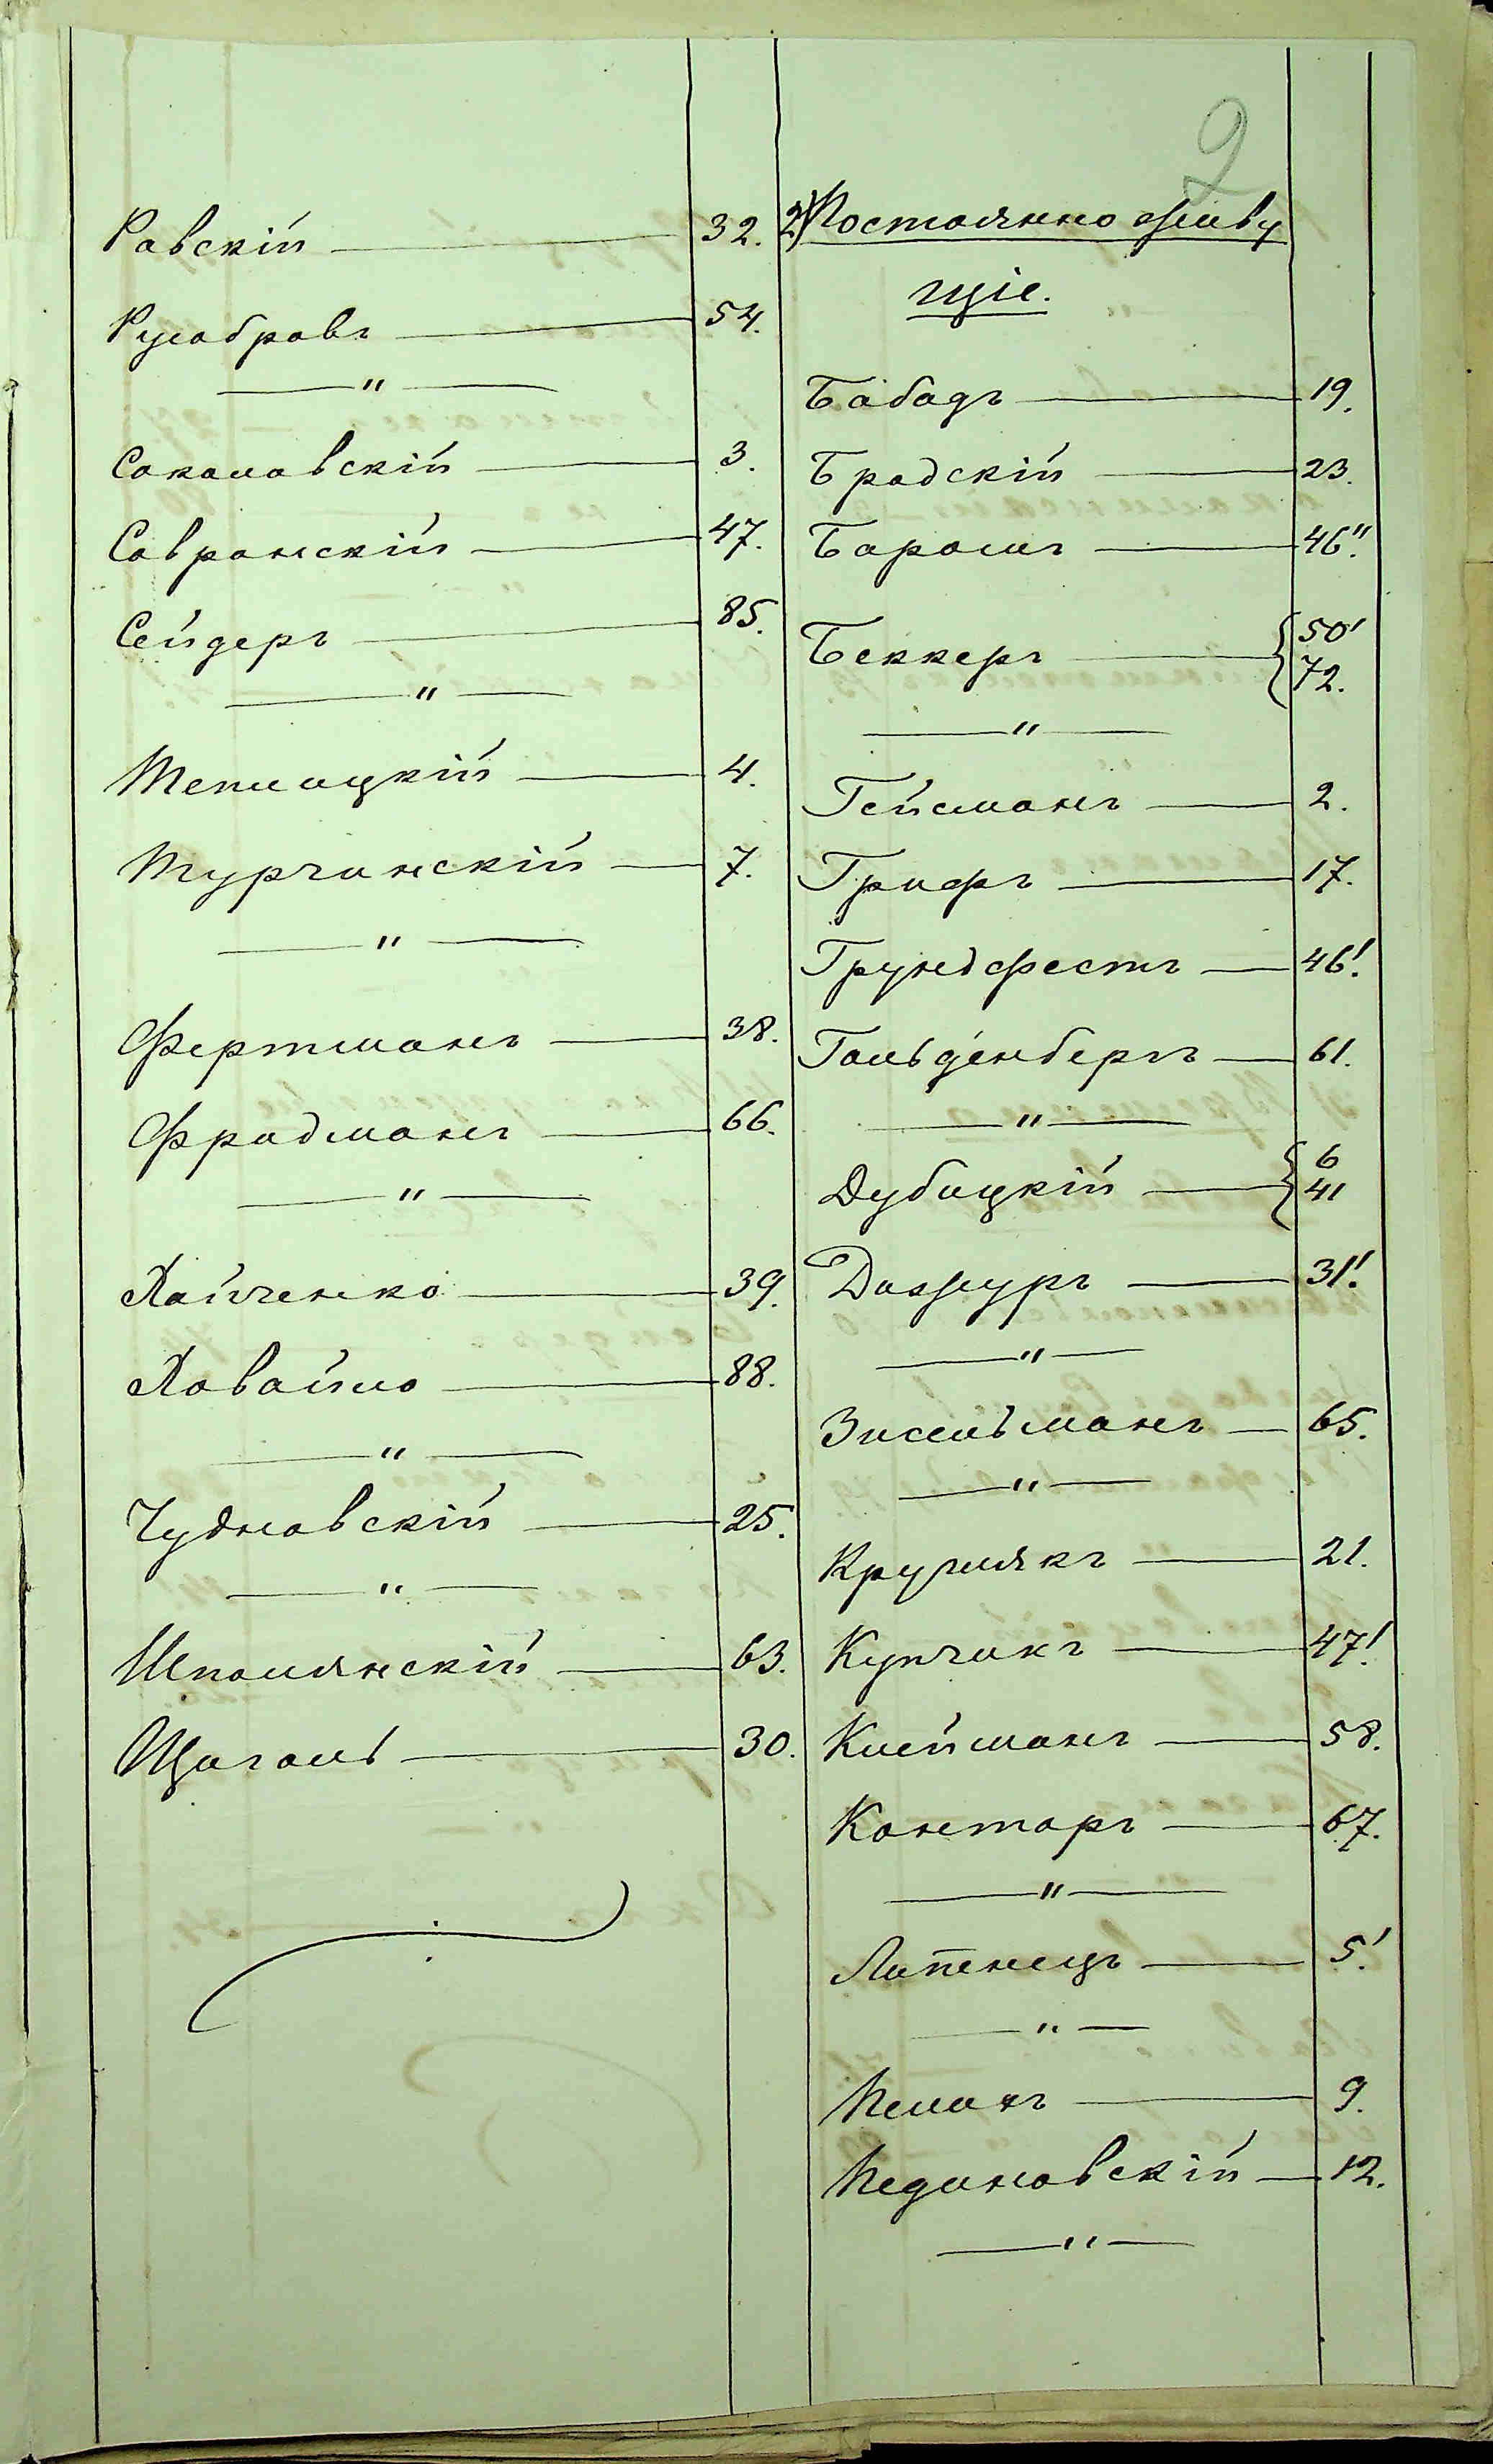 2
Равскій 32.
Русобровъ 54.
"
Соколовскій 3.
Савранскій 47.
Сейдеръ 85.
"
Теплицкій 4.
Турчинскій 7.
"
Фертманъ 38.
Фридманъ 66.
"
Хайченко 39.
Ховайло 88.
"
Чудновскій 25.
"
Шполянскій 63.
Щиголь 30.
2) Постоянно живу
щіе.
Бабадъ 19.
Бродскій 23.
Баромъ 46".
Беккеръ { 50'
72.
"
Гейсманъ 2.
Грифъ 17.
Грундфестъ 46'.
Гольденбергъ 61.
"
Дубицкій { 6
41
Дижуръ 31'.
"
Зисельманъ 65.
"
Кругликъ 21.
Купчикъ 47'.
Клейманъ 58.
Конторъ 67.
"
Липенецъ 5'.
"
Пелихъ 9.
Пединовскій 12.
"